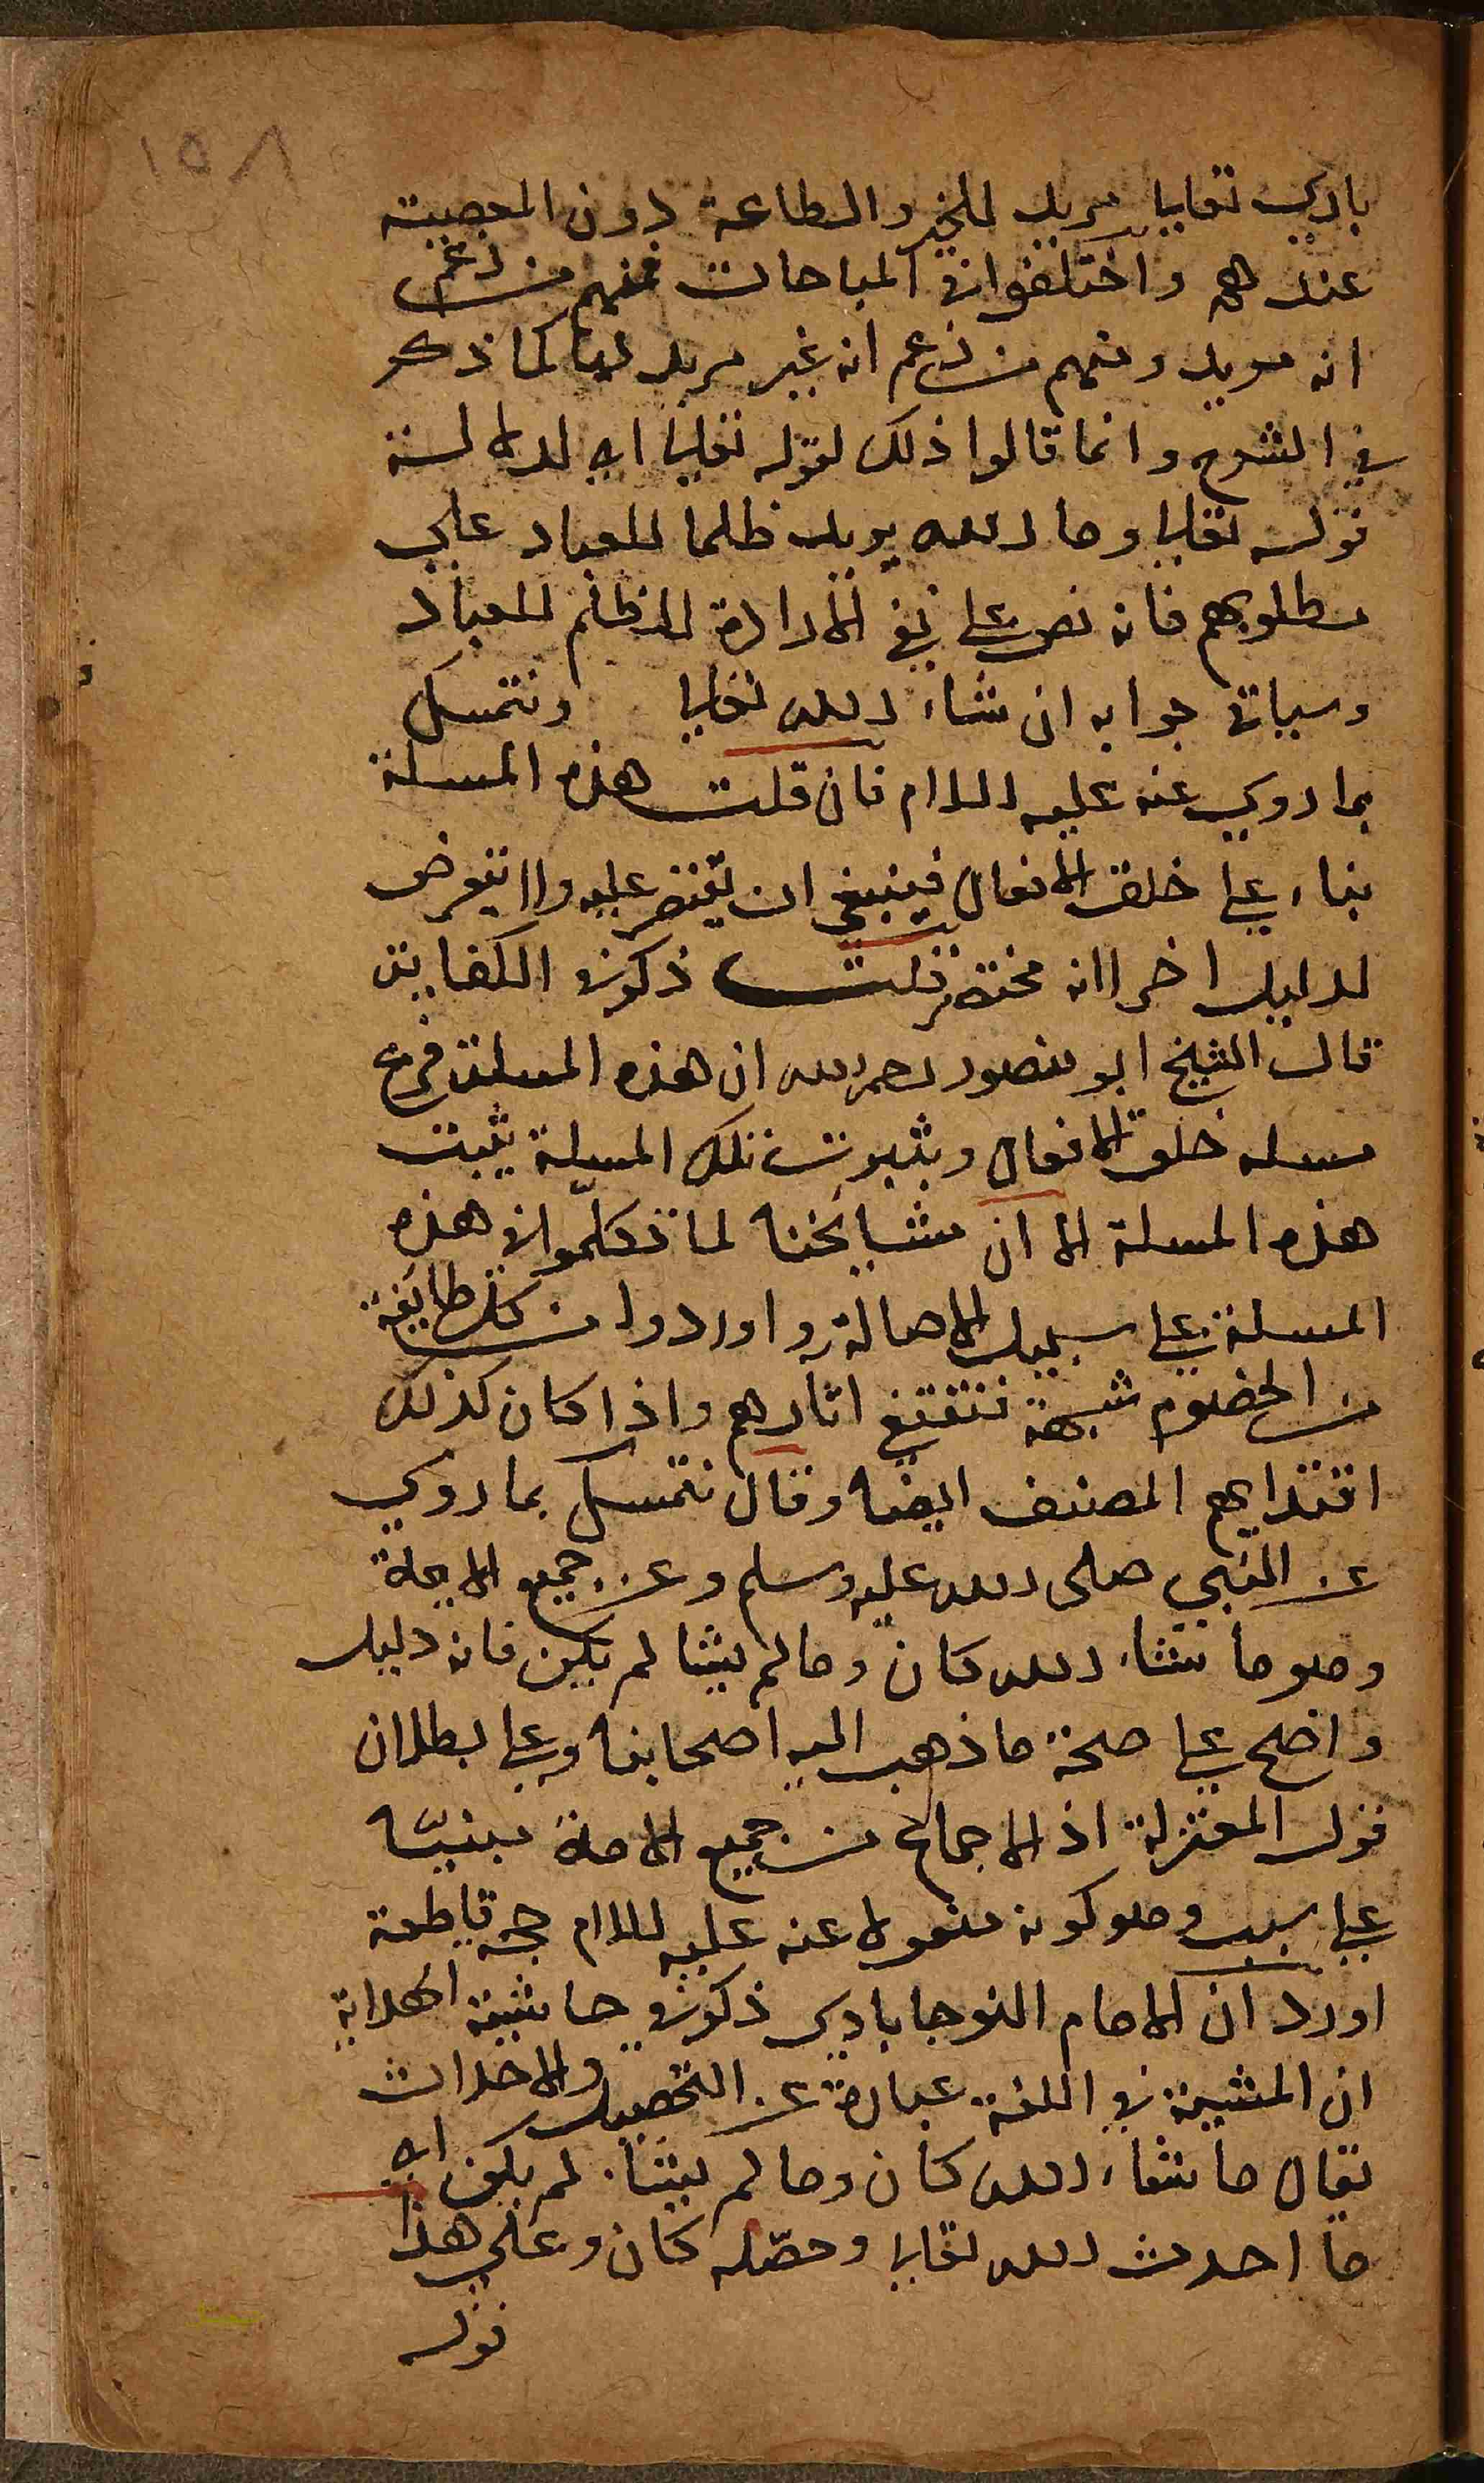 ١٥٨
باري تعالى مريد للخير والطاعة دون المعصية
عندهم واختلفوا في المباحات فمنهم من زعم
انه مريد ومنهم من زعم انه غير مريد لها كما ذكر
في الشرح وانما قالوا ذلك لقوله تعالى اي لدلالة
قوله تعالى وما الله يريد ظلما للعباد على
مطلوبهم فانه نص على نفي الارادة للظلم للعباد
وسياتي جوابه ان شاء الله تعالى ونتمسك
بما روي عنه عليه السلام فان قلت هذه المسلة
بناء على خلق الافعال فينبغي ان يقتصر عليه ولا يتعرض
لدليل اخر لانه مختصر قلت ذكر في الكفاية
قال الشيخ ابو منصور رحمه الله ان هذه المسلة فرع
مسله خلق الافعال وبثبوت تلك المسلة يثبت
هذه المسلة الا ان مشايخنا لما تكلموا في هذه
المسلة على سبيل الاصالة واوردوا من كل طايفة
من الخصوم شبهة فنقتفي اثارهم واذا كان كذلك
اقتدا بهم المصنف ايضا وقال نتمسك بما روي
عن النبي صلى الله عليه وسلم وعن جميع الاجلة
وهو ما شاء الله كان وما لم يشا لم يكن فانه دليل
واضح على صحة ما ذهب اليه اصحابنا وعلى بطلان
قول المعتزلة اذ الاجماع من جميع الامة مبنيّا
على سبب وهو كونه منقولا عنه عليه السلام حجة قاطعة
اورد ان الامام النوجابادي ذكر في حاشية الهداية
ان المشية في اللغة عبارة عن التحصيل والاحداث
يقال ما شاء الله كان وما لم يشا لم يكن اي
ما احدث الله تعالى وحصّله كان وعلى هذا
قوله